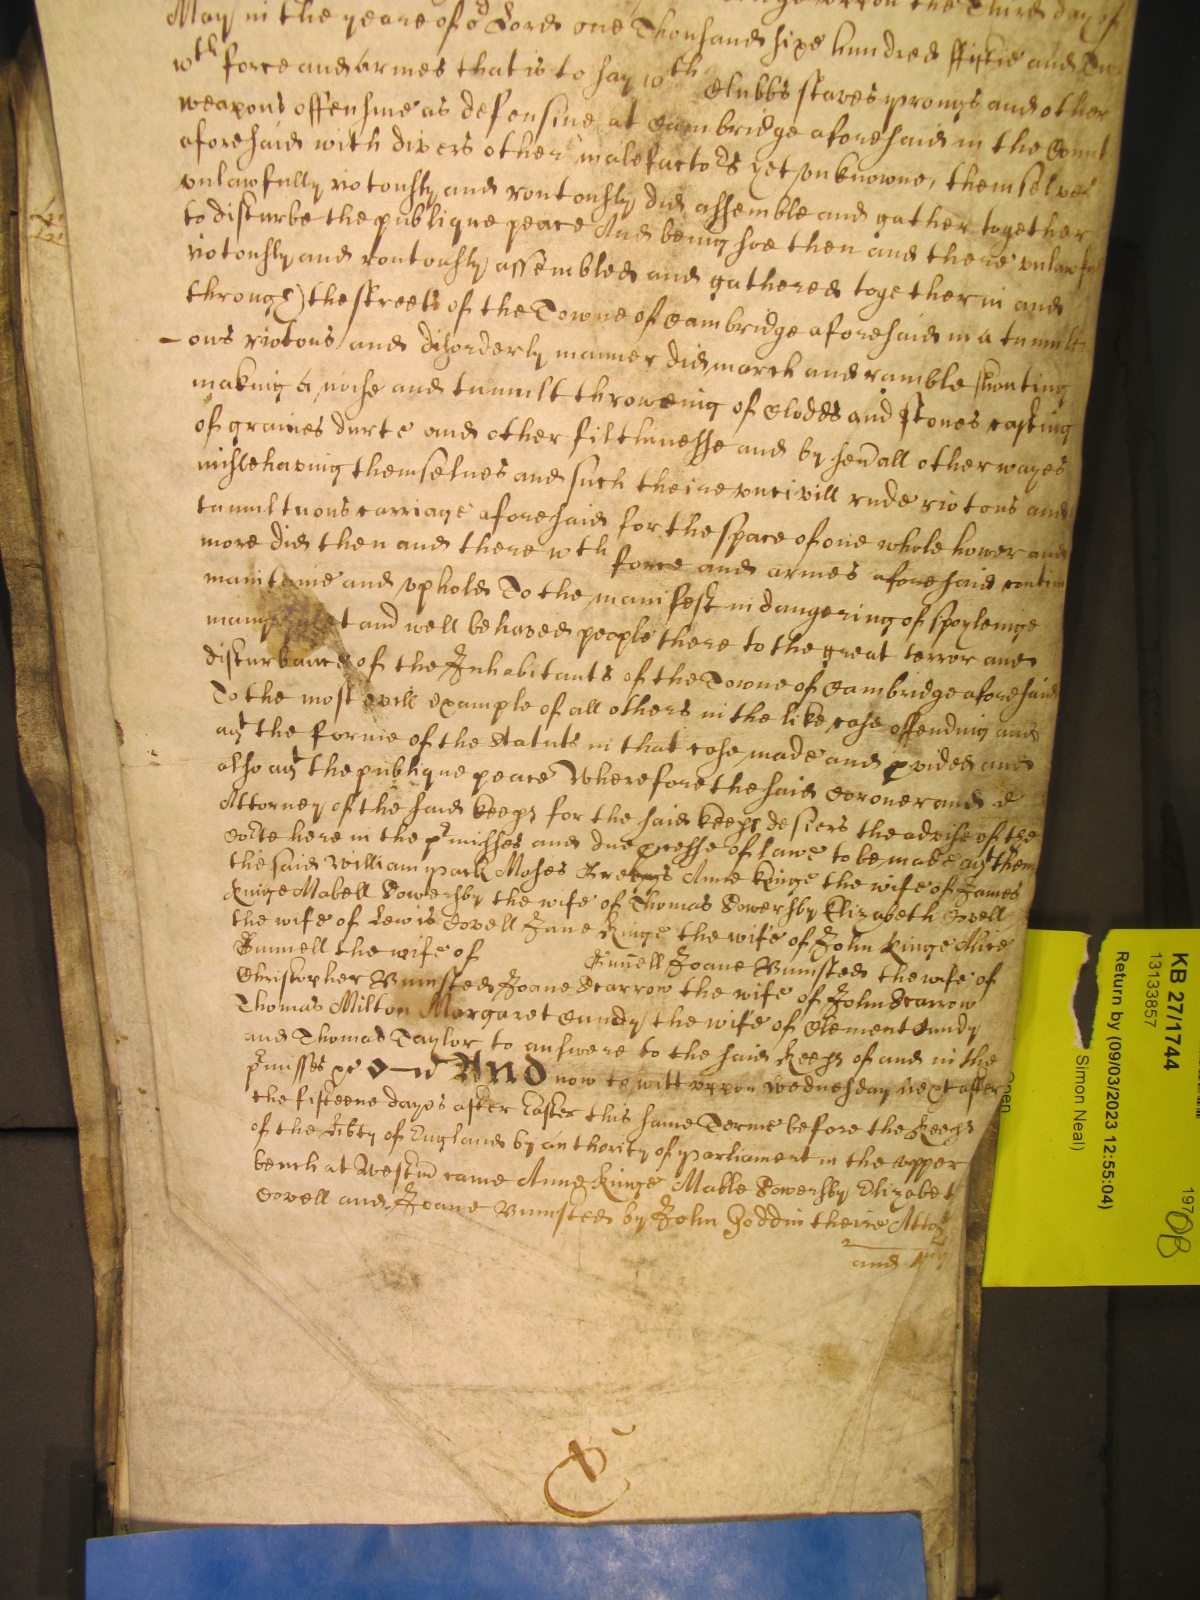 upon the Third day of
May in the yeare of or Lord one Thousand sixe hundred ffiftie and Two
wth force and Armes that is to say wth Clubbs staves prongs and other
weapons offensive as defensive at Cambridge aforesaid in the Count
aforesaid with divers other malefactors yet unknowne, themselves
unlawfully riotously and routously did assemble and gather together
to disturbe the publique peace And being soe then and there unlawfu
riotously and routously assembled and gathered together in and
through the streets of the Towne of Cambridge aforesaid in a tumult
- ous riotous and disorderly manner did march and ramble shouting
making a noise and tumult throweing of Clodds and stones casting
of graines durte and other filthinesse and by sevall other wayes
misbehaving themselves and such theire uncivill rude riotous and
tumultuous carriage aforesaid for the space of one whole hower and
more did then and there wth force and armes aforesaid contin
maintaine and uphold To the manifest indangering of spoyleinge
many and well behaved people there to the great terror and
disturbance of the Inhabitants of the Towne of Cambridge aforesaid
To the most evill example of all others in the like case offending and
agt the forme of the Statuts in that case made and pvided and
also agt the publique peace Wherefore the said Coroner and
Attorney of the said Keeps for the said Keeps desiers the advise of the
Corte here in the prmisses and due pcesse of lawe to be made agt them
the said William pack Moses Anne Kinge the wife of James
Kinge Mabell Sowersby the wife of Thomas Sowersby Elizabeth Covell
the wife of Lewis Covell Jane Kinge the wife of John Kinge Alice
Funnell the wife of Funell Joane Bumsteed the wife of
Christopher Bumsteed Joane Scarrow the wife of John Scarrow
Thomas Milton Margaret Cundy the wife of Clement Cundy
and Thomas Taylor to answere to the said Keeps of and in the
prmisses &c And now to witt uppon Wednesday next after
the fifteene dayes after Easter this same Terme before the Keeps
of the libty of England by authority of parliament in the upper
bench at Westm came Anne Kinge Mable Sowersby Elizabet
Covell and Joane Bumsteed by John Hoddin theire Attor
and
KB 27/1744
13133857
Return by (09/03/2023 12:55:04)
Simon Neal)
197